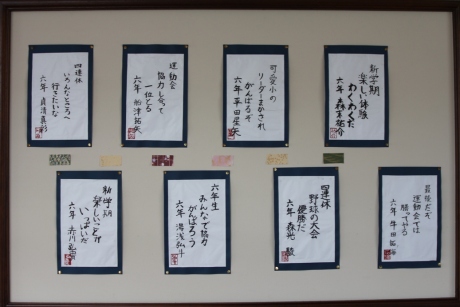 新学期
楽しい体験
わくわくだ
六年
可愛小の
リーダーまかされ
がんばるぞ
六年 平田星矢
運動会
協力し合って
一位とる
六年 船津拓矢
四連休
いろんなところへ
行きたいな
六年 貞清真彩
最後だぞ
運動会では
勝ってやる
六年 牛田
四連休
野球の大会
優勝だ
六年 森光 駿
六年生
みんなで協力
がんばろう
六年 湯浅弘斗
新学期
楽しいことが
いっぱいだ
六年 赤川